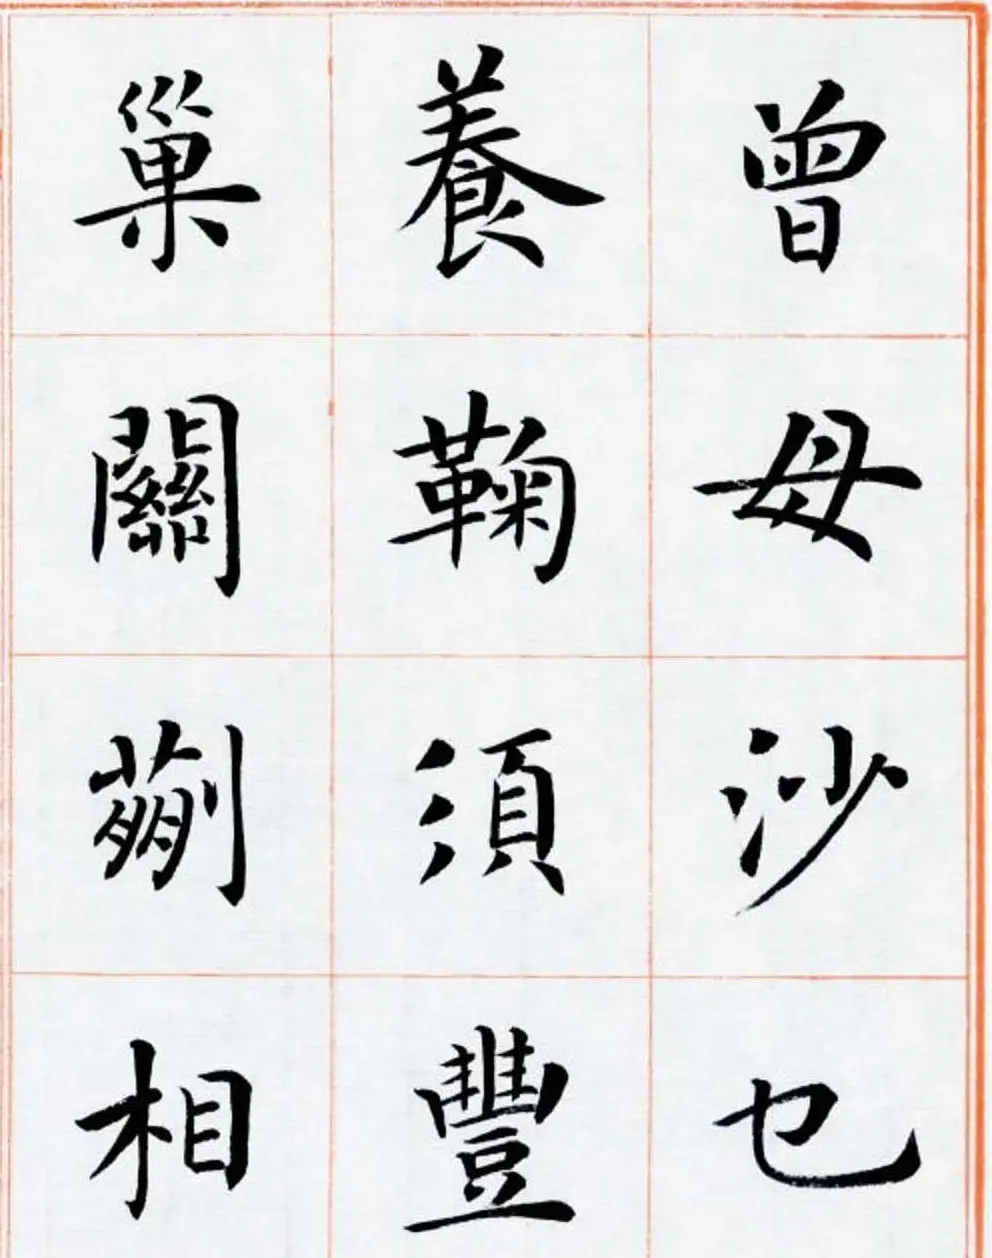 曾母沙乜
養鞠須豐
巢關蒯相